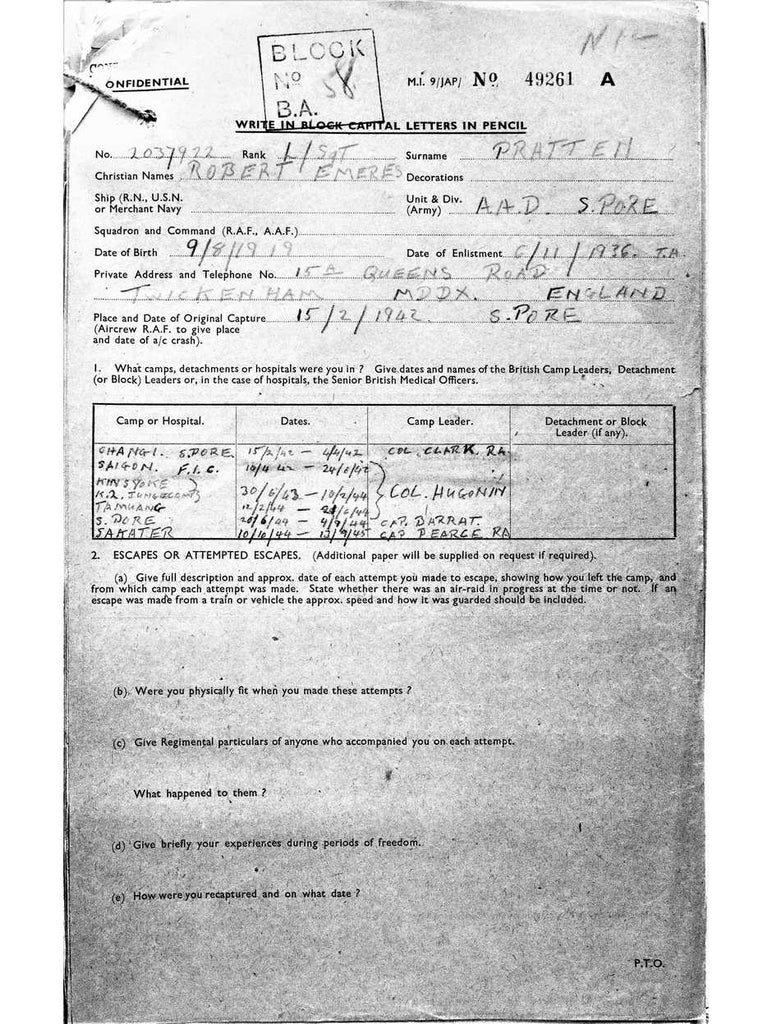 BLOCK
Nº 58
B.A.
ONFIDENTIAL
M.I. 9/JAP/ Nº 49261 A
WRITE IN BLOCK CAPITAL LETTERS IN PENCIL
No. 2037922 Rank L/SgT Surname PRATTEN
Christian Names ROBERT EMERES Decorations
Ship (R.N., U.S.N. or Merchant Navy
Unit & Div. (Army) A.A.D. S.PORE
Squadron and Command (R.A.F., A.A.F.)
Date of Birth 9/8/1919 Date of Enlistment 6/11/1936. T.A.
Private Address and Telephone No. 15A QUEENS ROAD
TWICKENHAM MDDX. ENGLAND
Place and Date of Original Capture 15/2/1942 S.PORE
(Aircrew R.A.F. to give place
and date of a/c crash).
1. What camps, detachments or hospitals were you in ? Give dates and names of the British Camp Leaders, Detachment
(or Block) Leaders or, in the case of hospitals, the Senior British Medical Officers.
Camp or Hospital. Dates. Camp Leader. Detachment or Block Leader (if any).
CHANGI. S.PORE. 15/2/42 — 4/4/42 COL. CLARK. RA
SAIGON. F.I.C.
30/6/43 — 10/2/44 COL. HUGONIN
TAMUANG 12/2/44
S. PORE CAP. DARRAT.
SAKATER 10/10/44 CAP PEARCE RA
2. ESCAPES OR ATTEMPTED ESCAPES. (Additional paper will be supplied on request if required).
(a) Give full description and approx. date of each attempt you made to escape, showing how you left the camp, and
from which camp each attempt was made. State whether there was an air-raid in progress at the time or not. If an
escape was made from a train or vehicle the approx. speed and how it was guarded should be included.
(b) Were you physically fit when you made these attempts ?
(c) Give Regimental particulars of anyone who accompanied you on each attempt.
What happened to them ?
(d) Give briefly your experiences during periods of freedom.
(e) How were you recaptured and on what date ?
P.T.O.